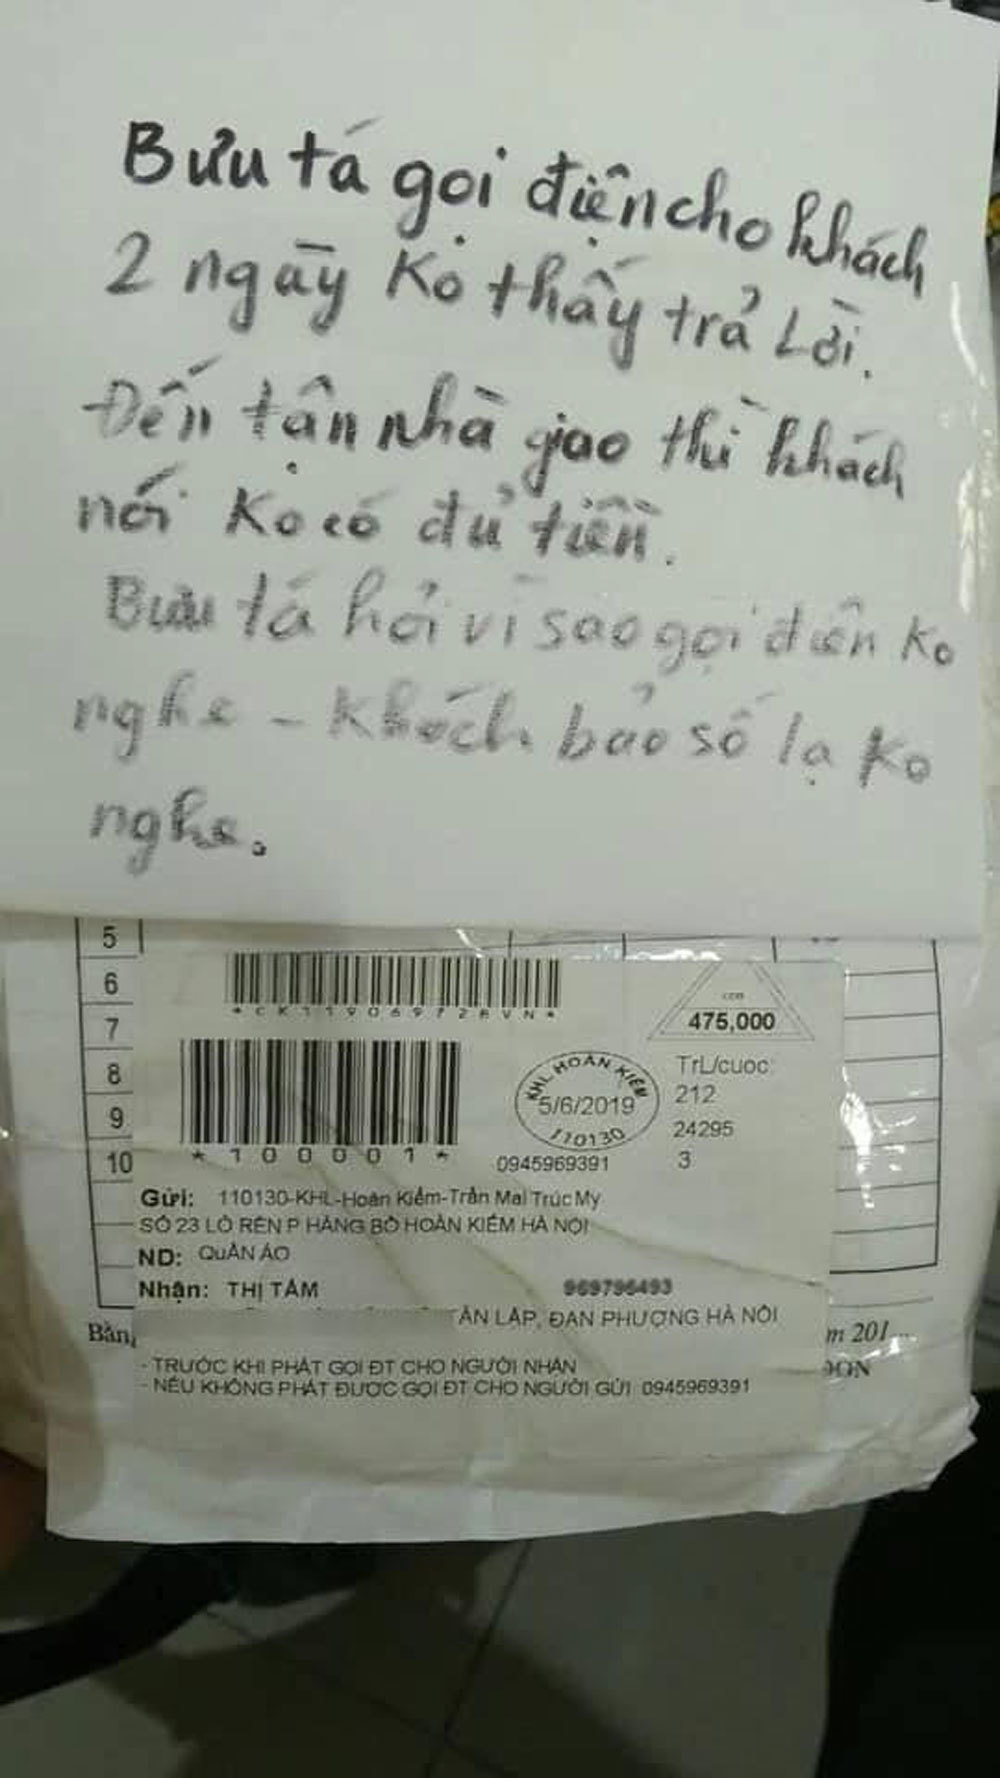 Bưu tá gọi điện cho khách
2 ngày Ko thấy trả Lời.
Đến tận nhà giao thì khách
nói Ko có đủ tiền.
Bưu tá hỏi vì sao gọi điện Ko
nghe - Khách bảo số lạ Ko
nghe.
5
6
7
8
9
10
*CK119069728VN*
COD
475,000
*100001*
KHL HOÀN KIẾM
5/6/2019
110130
TrL/cuoc:
212
24295
3
0945969391
Gửi: 110130-KHL-Hoàn Kiếm-Trần Mai Trúc My
SỐ 23 LÒ RÈN P HÀNG BỒ HOÀN KIẾM HÀ NỘI
ND: QuẦN ÁO
Nhận: THỊ TÂM 969796493
ÂN LẬP, ĐAN PHƯỢNG HÀ NỘI
Bằn
m 201...
- TRƯỚC KHI PHÁT GỌI ĐT CHO NGƯỜI NHẬN
- NẾU KHÔNG PHÁT ĐƯỢC GỌI ĐT CHO NGƯỜI GỬI 0945969391